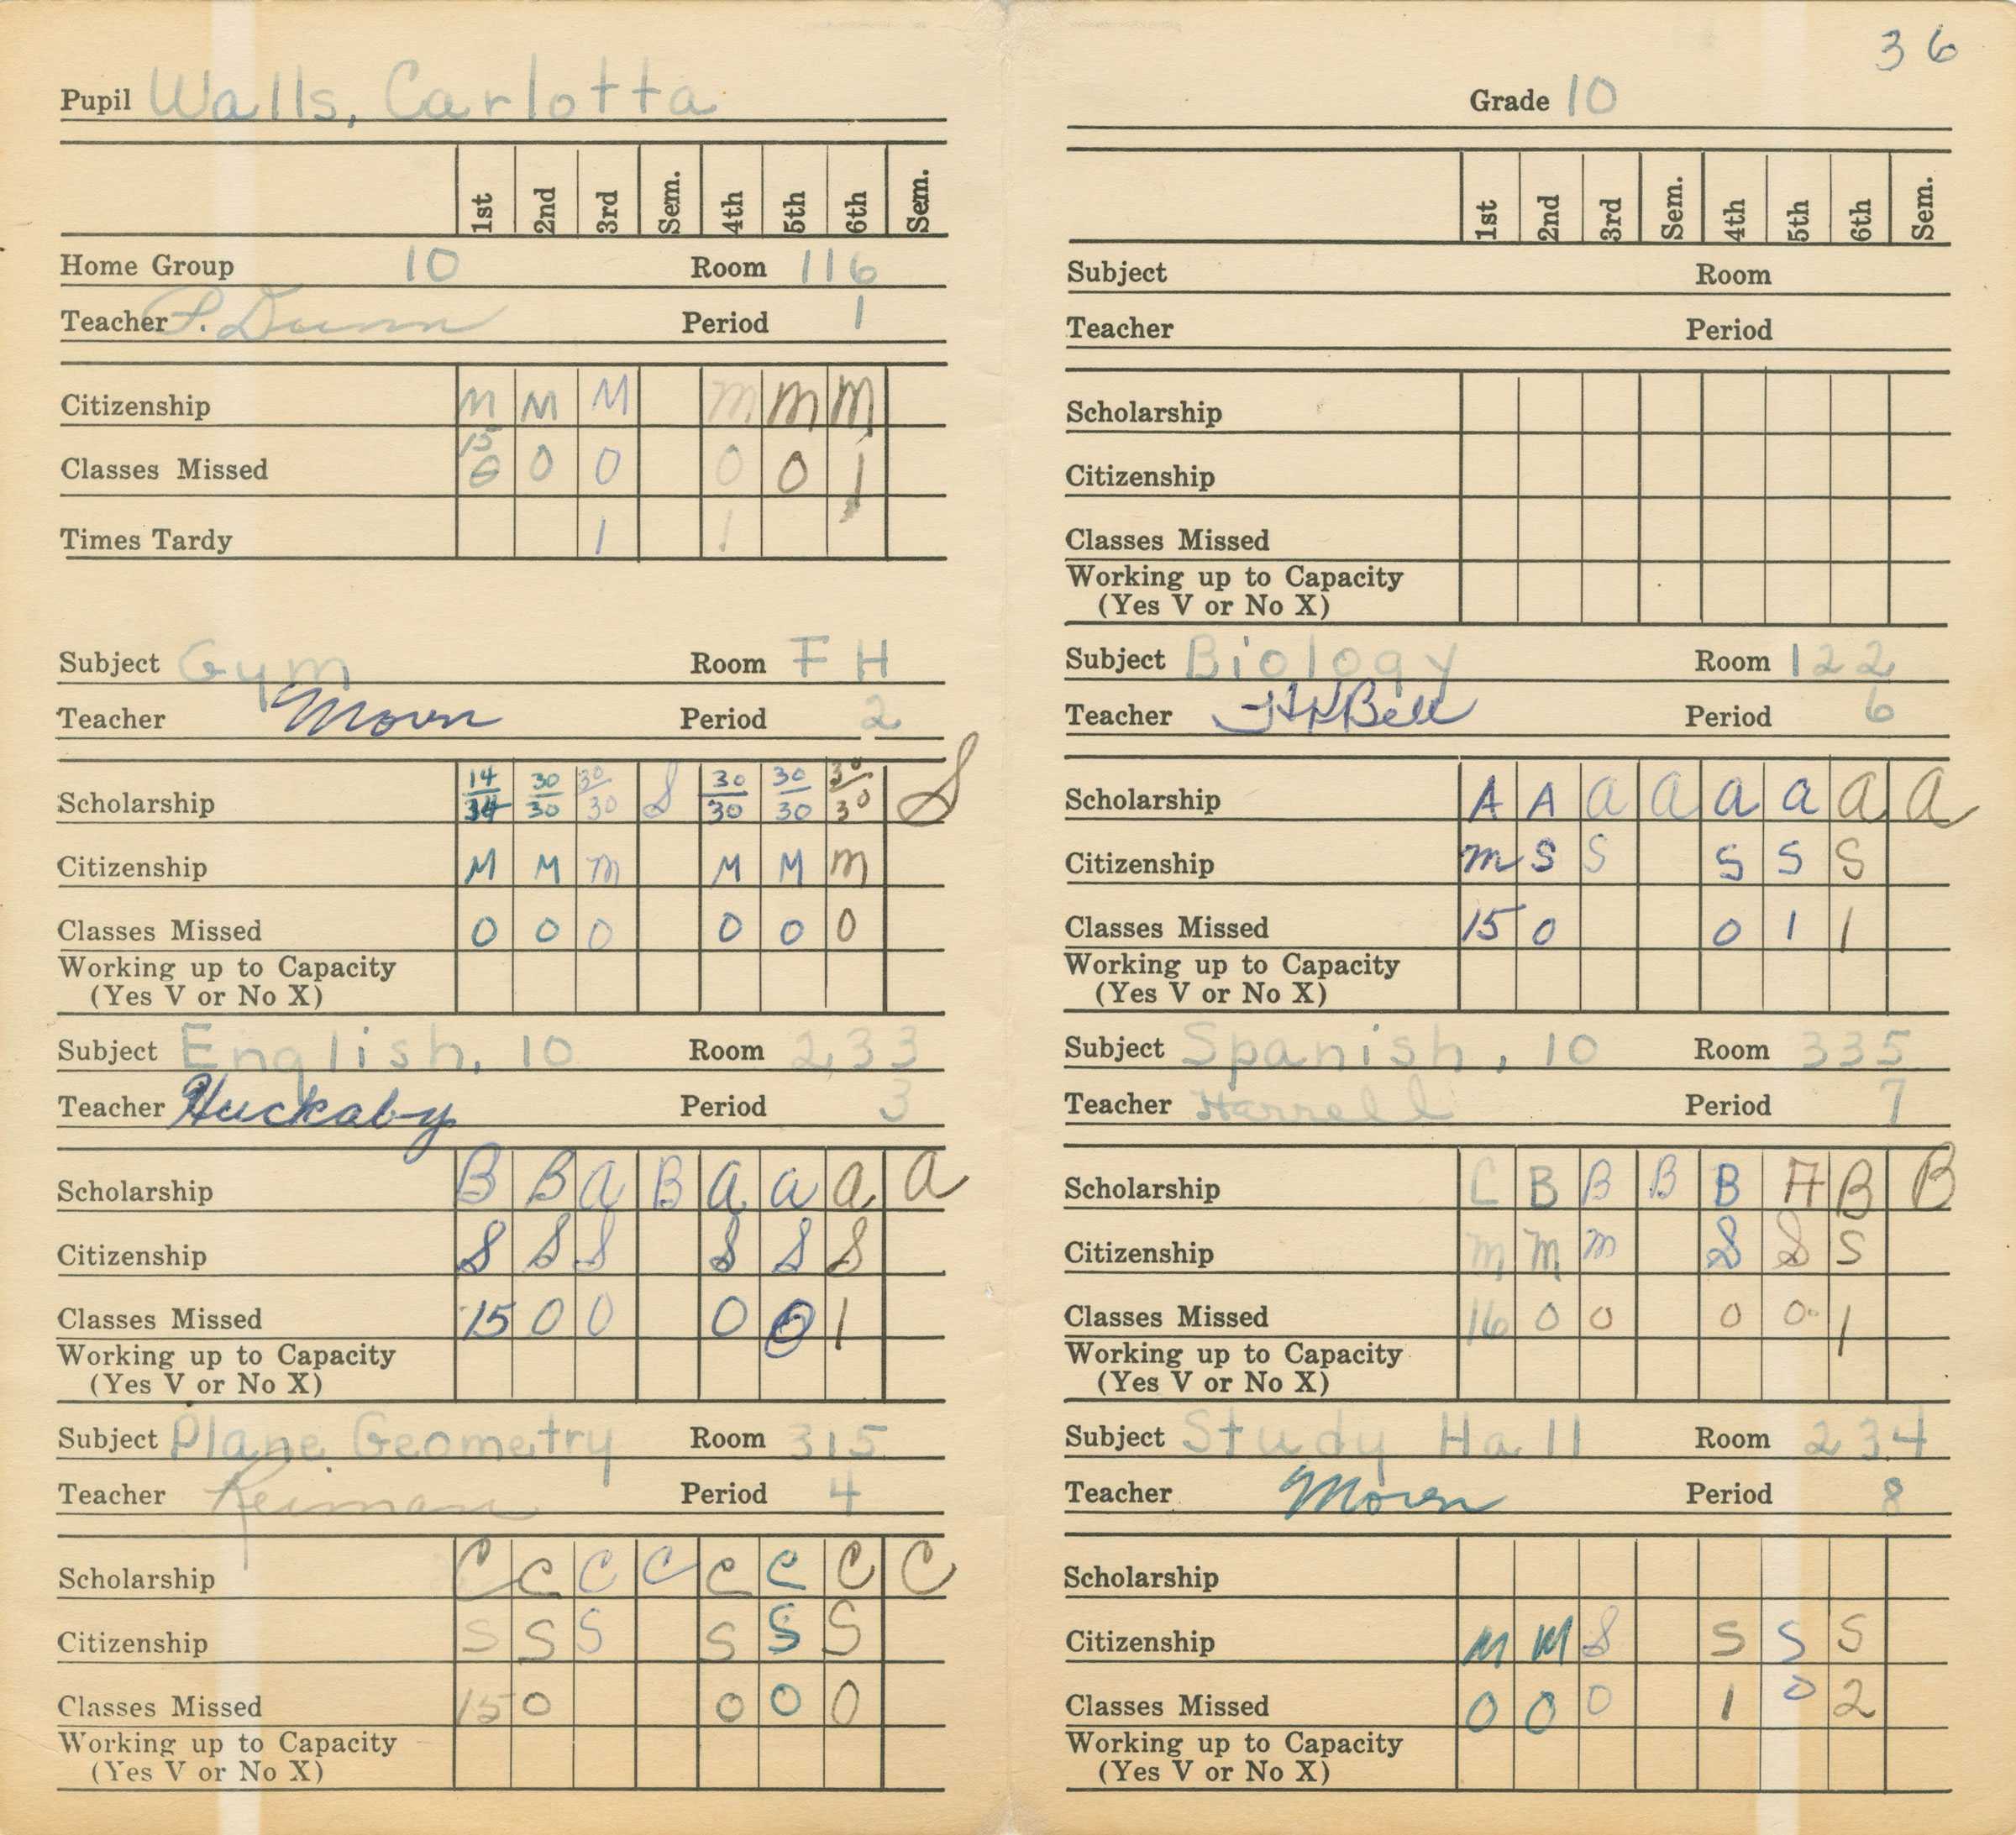 Pupil Walls, Carlotta
1st 2nd 3rd Sem. 4th 5th 6th Sem.
Home Group 10 Room 116
Teacher P. Dunn Period 1
Citizenship M M M m m m
Classes Missed 15 0 0 0 0 0 1
Times Tardy 1 1
Subject Gym Room F H
Teacher Period 2
Scholarship 14/34 30/30 30/30 S 30/30 30/30 30/30 S
Citizenship M M m M M m
Classes Missed 0 0 0 0 0 0
Working up to Capacity
(Yes V or No X)
Subject English, 10 Room 233
Teacher Huckaby Period 3
Scholarship B B a B a a a a
Citizenship S S S S S S
Classes Missed 15 0 0 0 0 1
Working up to Capacity
(Yes V or No X)
Subject Plane Geometry Room 315
Teacher Reiman Period 4
Scholarship C C C C C C C C
Citizenship S S S S S S
Classes Missed 15 0 0 0 0
Working up to Capacity
(Yes V or No X)
36
Grade 10
1st 2nd 3rd Sem. 4th 5th 6th Sem.
Subject Room
Teacher Period
Scholarship
Citizenship
Classes Missed
Working up to Capacity
(Yes V or No X)
Subject Biology Room 122
Teacher Bell Period 6
Scholarship A A a a a a a a
Citizenship m S S S S S
Classes Missed 15 0 0 1 1
Working up to Capacity
(Yes V or No X)
Subject Spanish, 10 Room 335
Teacher Harrell Period 7
Scholarship C B B B B A B B
Citizenship m m m S S S
Classes Missed 16 0 0 0 0 1
Working up to Capacity
(Yes V or No X)
Subject Study Hall Room 234
Teacher Period 8
Scholarship
Citizenship M M S S S S
Classes Missed 0 0 0 1 0 2
Working up to Capacity
(Yes V or No X)